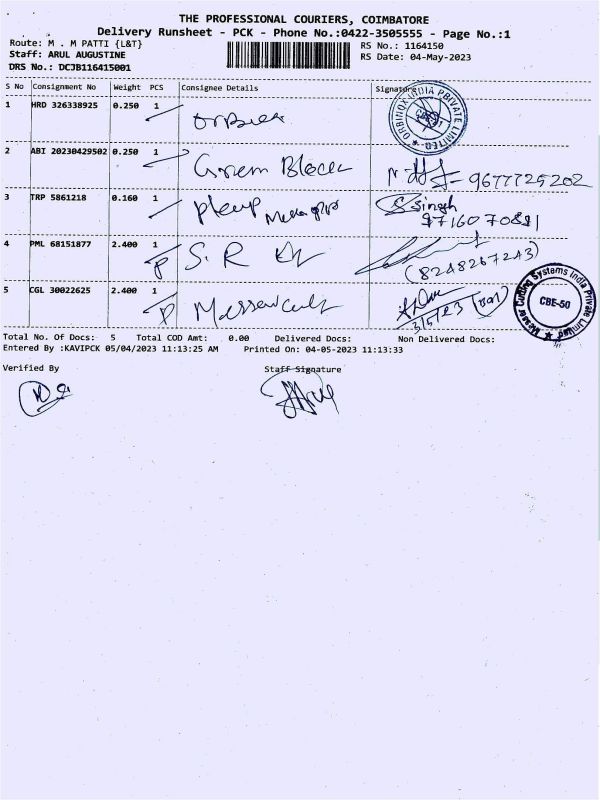 THE PROFESSIONAL COURIERS, COIMBATORE
Delivery Runsheet - PCK - Phone No.:0422-3505555 - Page No.:1
Route: M . M PATTI {L&T}
RS No.: 1164150
Staff: ARUL AUGUSTINE
RS Date: 04-May-2023
DRS No.: DCJB116415001
S No Consignment No Weight PCS Consignee Details Signature
1 HRD 326338925 0.250 1
ORBINOX INDIA PRIVATE LIMITED
2 ABI 20230429502 0.250 1 Green
9677725202
3 TRP 5861218 0.160 1 Singh
9716070891
4 PML 68151877 2.400 1 S. R
(8248267243)
5 CGL 30022625 2.400 1
3/5/23
Messer Cutting Systems India Private Limited
CBE-50
Total No. Of Docs: 5 Total COD Amt: 0.00 Delivered Docs: Non Delivered Docs:
Entered By :KAVIPCK 05/04/2023 11:13:25 AM Printed On: 04-05-2023 11:13:33
Verified By Staff Signature